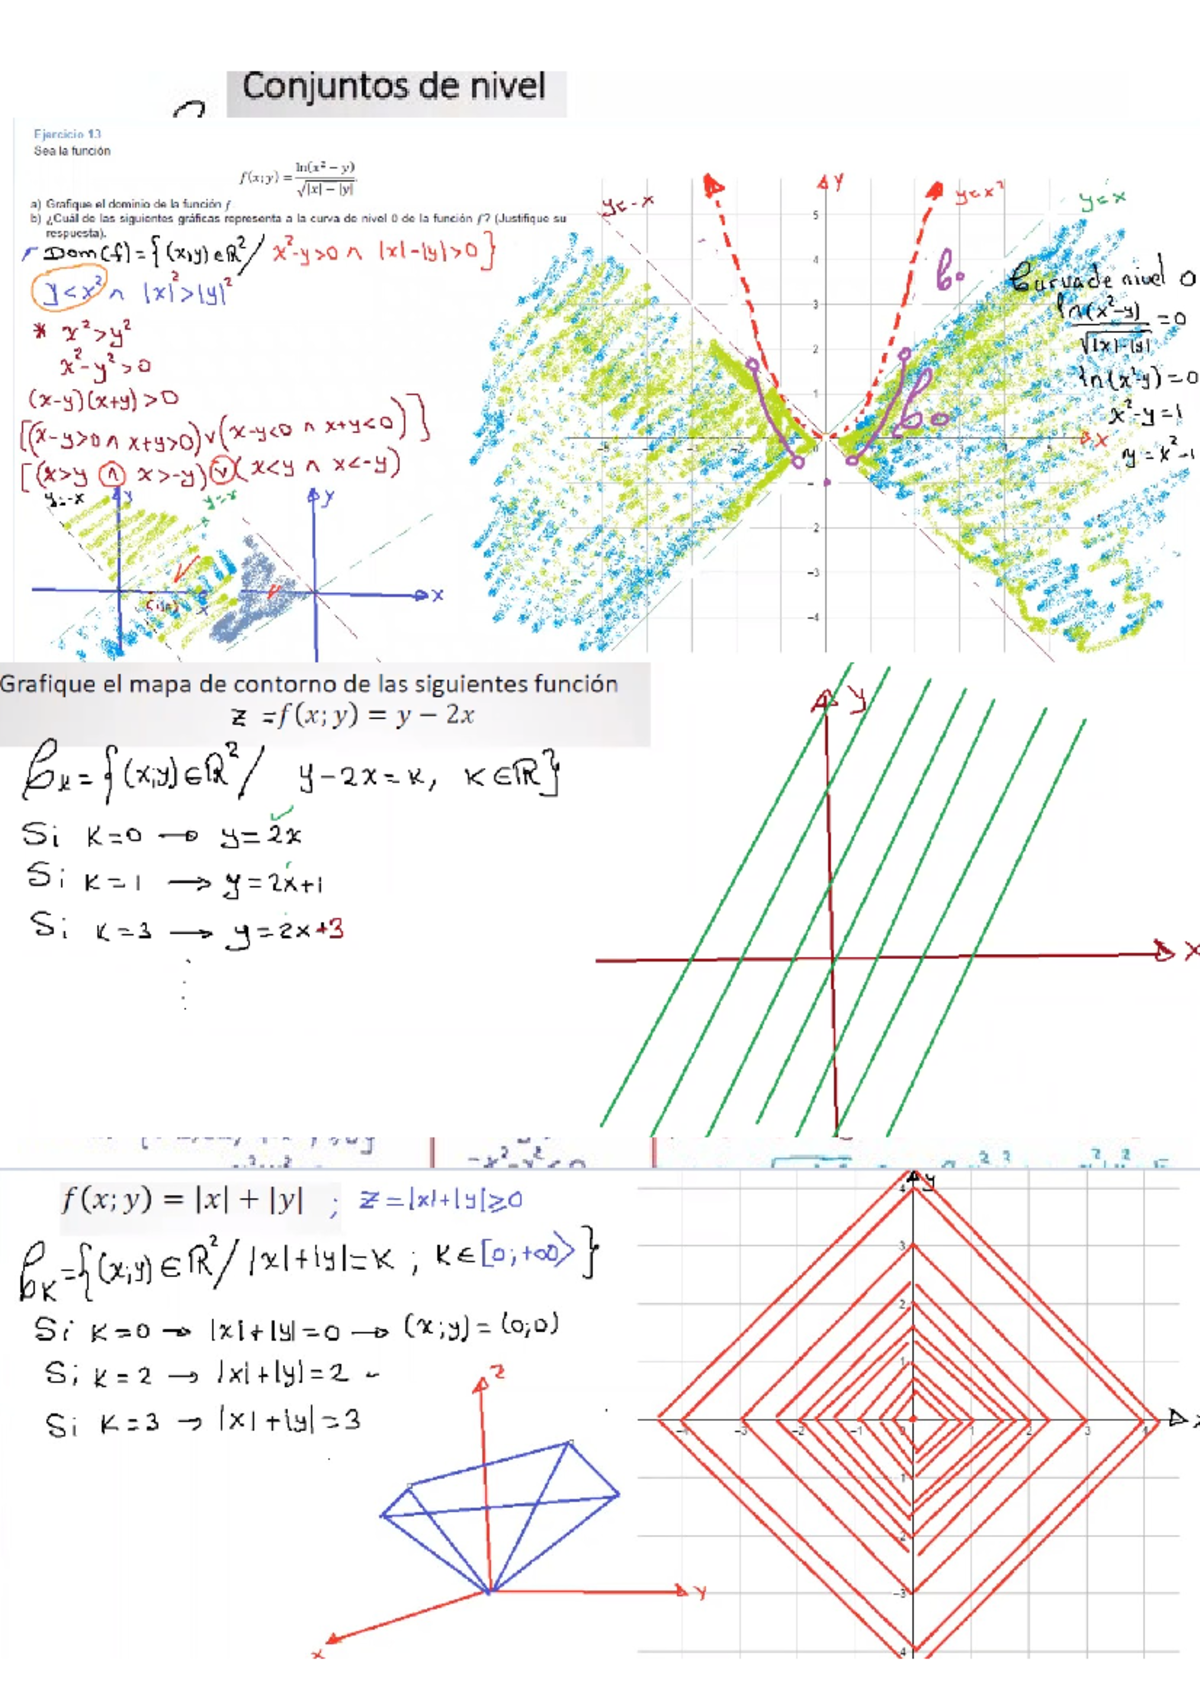 Conjuntos de nivel
Ejercicio 13
Sea la función
f(x;y) = ln(x² – y) / √|x| – |y|
a) Grafique el dominio de la función f
b) ¿Cuál de las siguientes gráficas representa a la curva de nivel 0 de la función f? (Justifique su
respuesta).
Dom(f)={(x,y)∈ℝ²/ x²-y>0 ∧ |x|-|y|>0}
y<x² ∧ |x|²>|y|²
* x²>y²
x²-y²>0
(x-y)(x+y)>0
[(x-y>0 ∧ x+y>0)∨(x-y<0 ∧ x+y<0)]
[(x>y ∧ x>-y)∨(x<y ∧ x<-y)
y=-x
y
y
x
x
y=-x
y
y=x²
y=x
5
4
3
2
1
-2
-3
-4
x
Curva de nivel 0
ln(x²-y) / √|x|-|y| = 0
ln(x²-y)=0
x²-y=1
y=x²-1
Grafique el mapa de contorno de las siguientes función
z =f(x; y) = y – 2x
ℓk={(x;y)∈ℝ²/ y-2x=k, k∈ℝ}
Si k=0 → y=2x
Si k=1 → y=2x+1
Si k=3 → y=2x+3
y
x
f(x; y) = |x| + |y| ; z=|x|+|y|≥0
ℓk={(x;y)∈ℝ²/ |x|+|y|=k ; k∈[0;+∞⟩}
Si k=0 → |x|+|y|=0 → (x;y)=(0;0)
Si k=2 → |x|+|y|=2
Si k=3 → |x|+|y|=3
z
y
x
y
4
3
2
1
-4 -3 -2 -1 1 2 3 4
-3